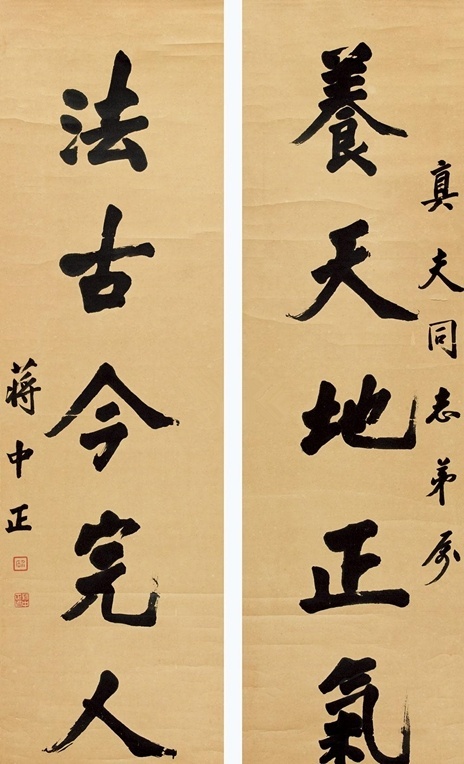 真夫同志弟
養天地正氣
法古今完人
蔣中正